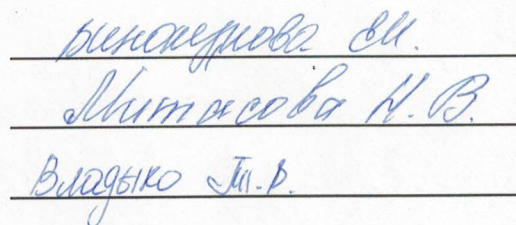 Винокурова ЕМ.
Митасова Н. В.
Владыко Т.В.